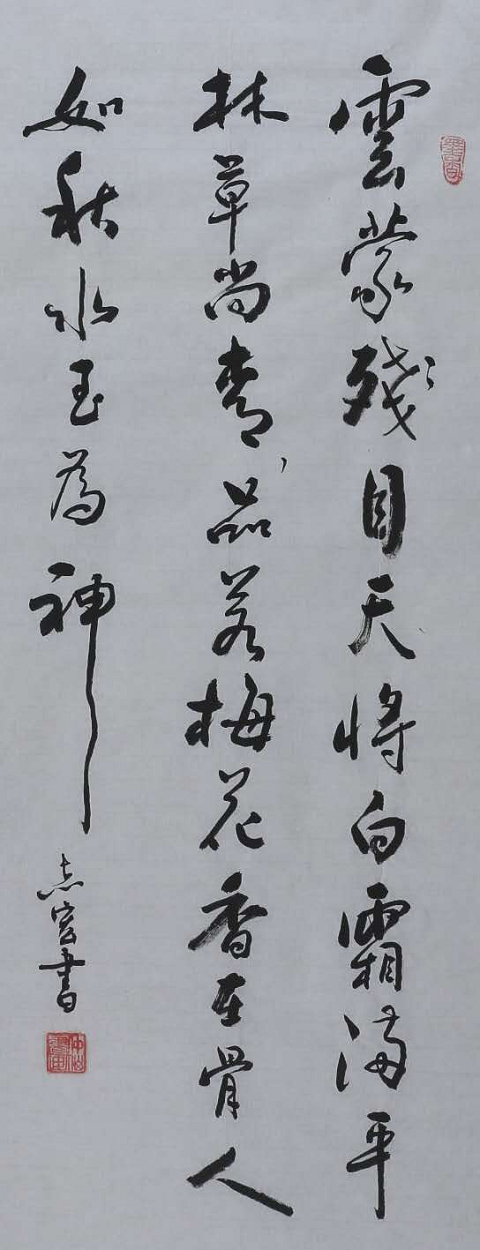 雲蒙殘目天將白霜滿平
林草尚青品若梅花香在骨人
如秋水玉為神
志書